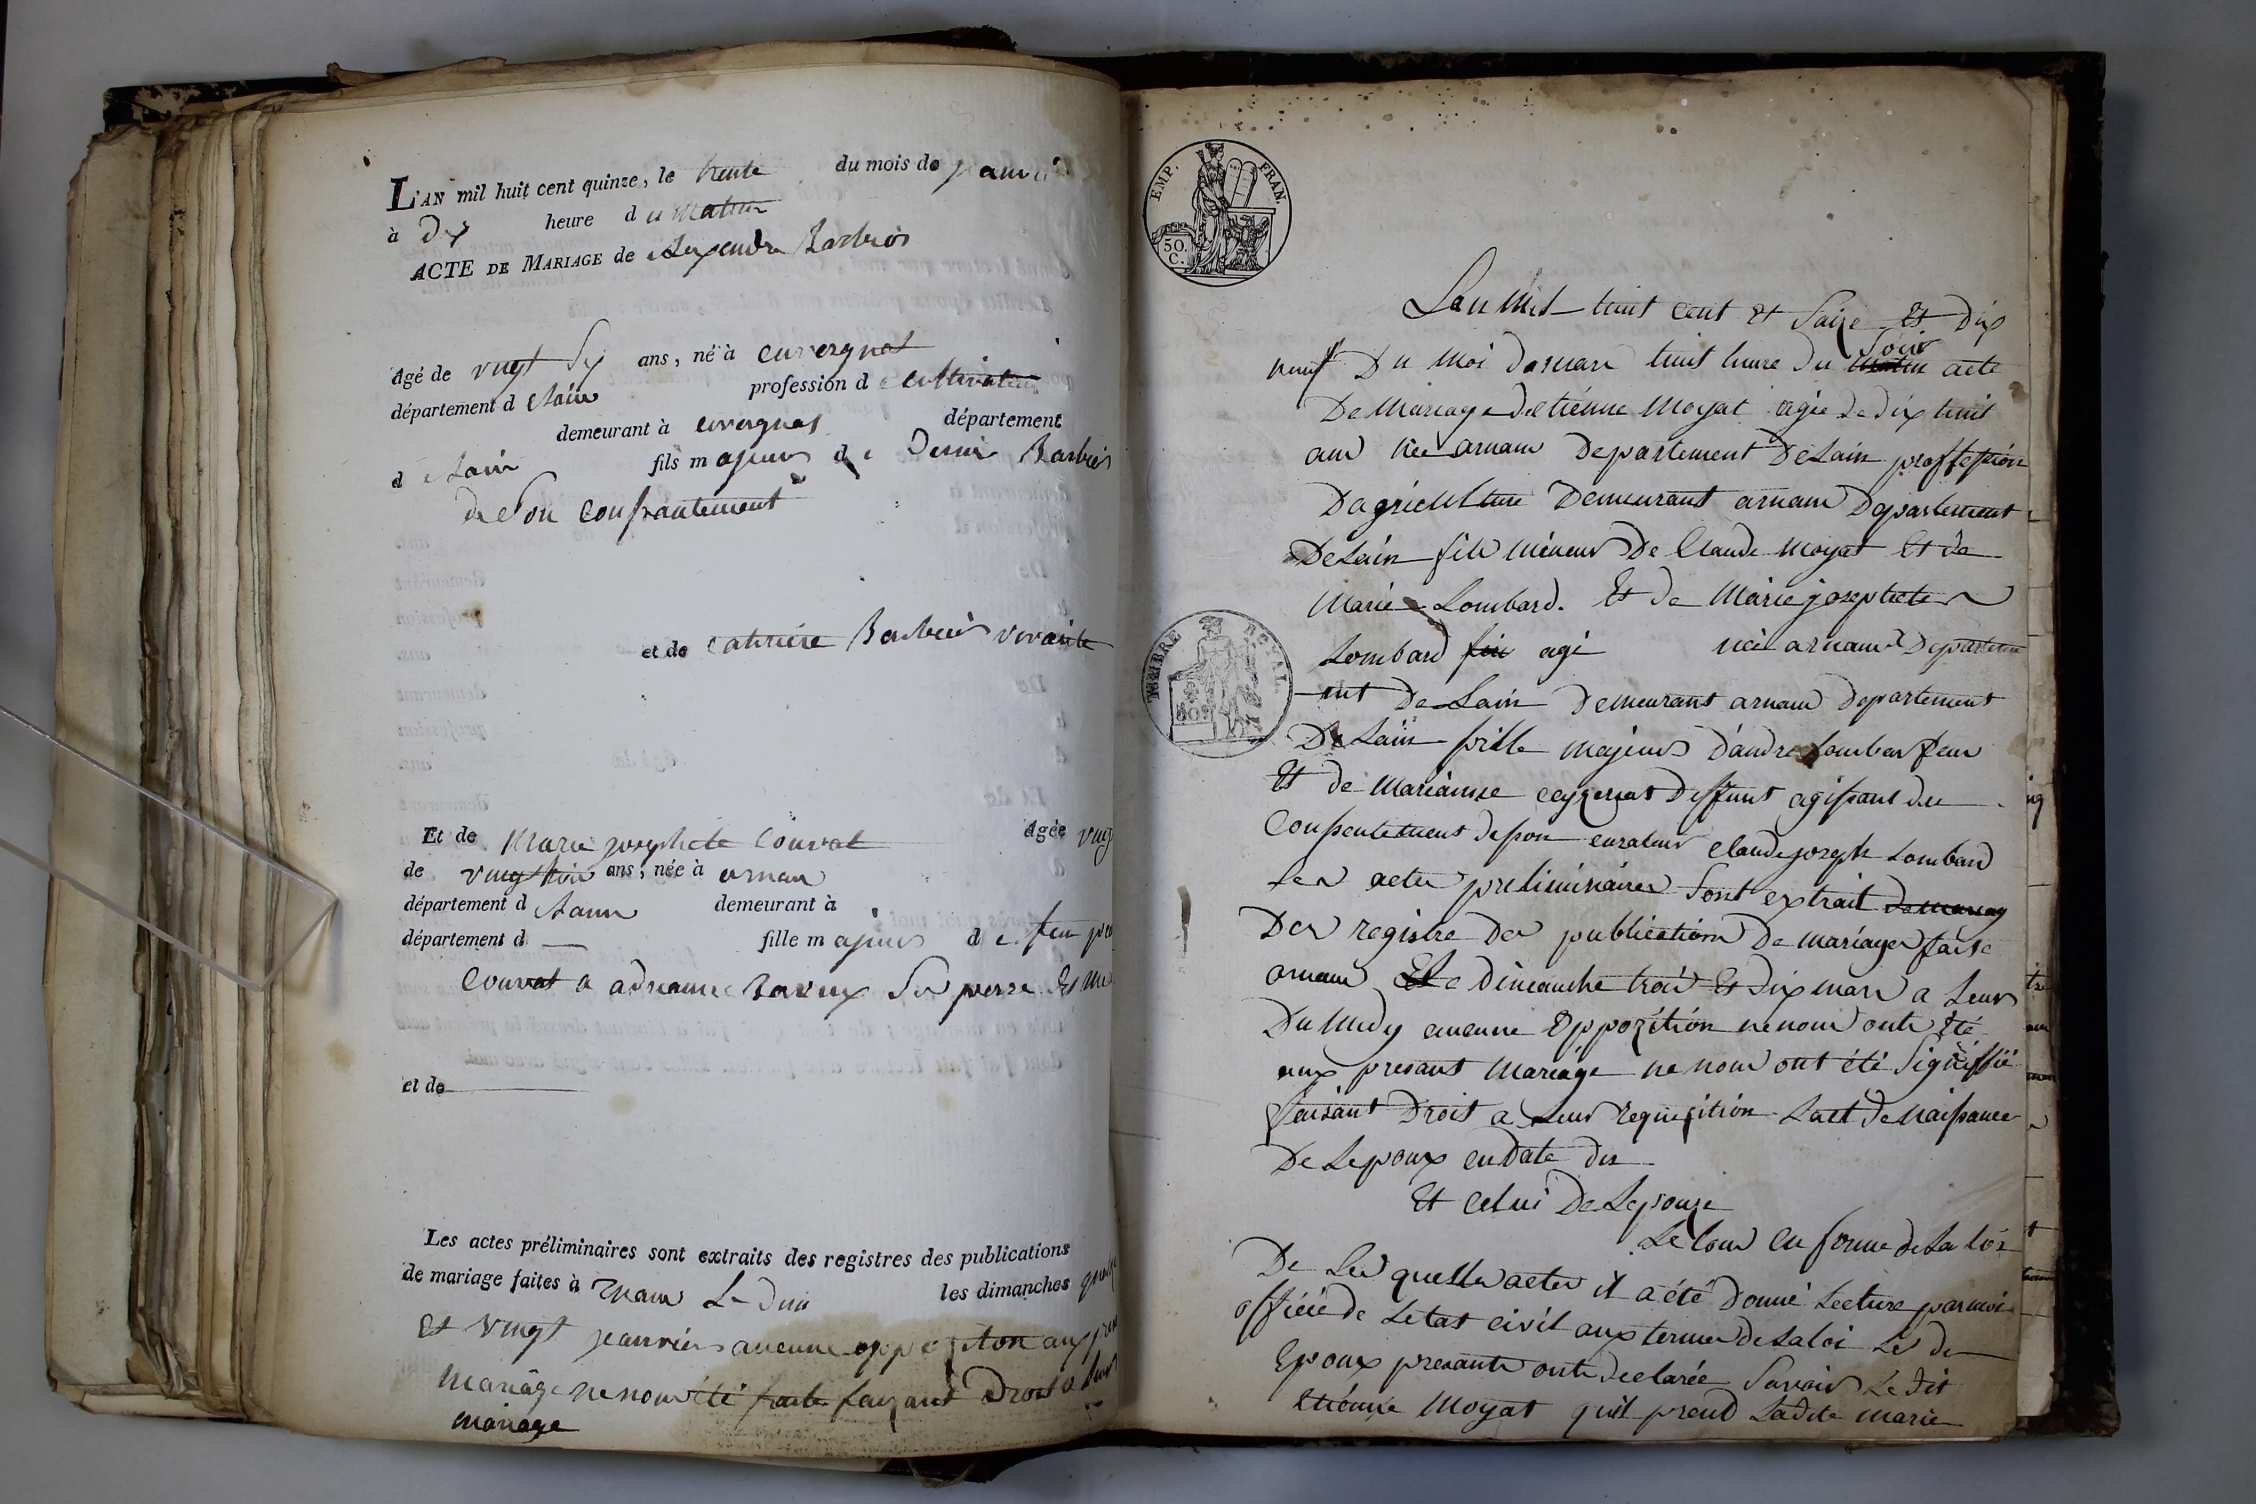 L'AN mil huit cent quinze, le trente du mois de jeanvié
à dix heure du matin
ACTE DE MARIAGE de Alexendre Barbier
âgé de vingt Six ans, né à cuvergnat
département d Lain profession de cultivateur
demeurant à cuvergnat département
de Lain fils majeur de Denis Barbier
de Son consantement
et de catherine Barbier vivante
Et de Marie josephete Couvat âgée
de vingt huit ans, née à arnan
département d Lain demeurant à
département d fille majeur de feu
Couvat a adrianne Ravux Ses perre Et
et de
Les actes préliminaires sont extraits des registres des publications
de mariage faites à arnans Le dim les dimanches
Et vingt jeanviers aucunne opposition aux
Mariage ne nous été faite fayant Droit a leur
mariage
EMP. FRAN.
50. C.
Lan Mil huit cent Et Saize Et Dix
neuf Du Moi de mars huit heure du Matin Soir acte
De Mariage detiénne Moyat agée de dix huit
ans née arnans Departement De Lain proffession
Dagriculture Demeurant arnans Departement
De Lain fils Mineurs De Claude Moyat Et de
Marie Lombard. Et de Marie josephetes
Lombard fin agé née arnans Departem
ent De Lain Demeurant arnans departement
De Lain fille Majeurs d'andre Lombar feu
Et de Marianne ceyzeriat Deffunt agissant du
Consentement de son curateur claude joseph Lombard
Les actes preliminaires Sont extrait de mariag
Des registre des publication De mariages faise
arnans Le dimanche trois Et dix mars a Leurs
Du Midy aucunne Oppozition ne nous onts été
aux presant Mariage ne nous ont été Signiffié
faisant Droit a Leur requisition Lact de Naissance
De Lepoux en Date du
Et celui De Lepouse
Le tous en forme de La loi
De Les quelles actes il a été Donné Lecture par moi
officié de Letat civil aux termes de la loi Les de
Epoux presants onts declarée Savoir Le dit
Etiénne Moyat quil prend Ladite Marie
TIMBRE ROYAL.
50